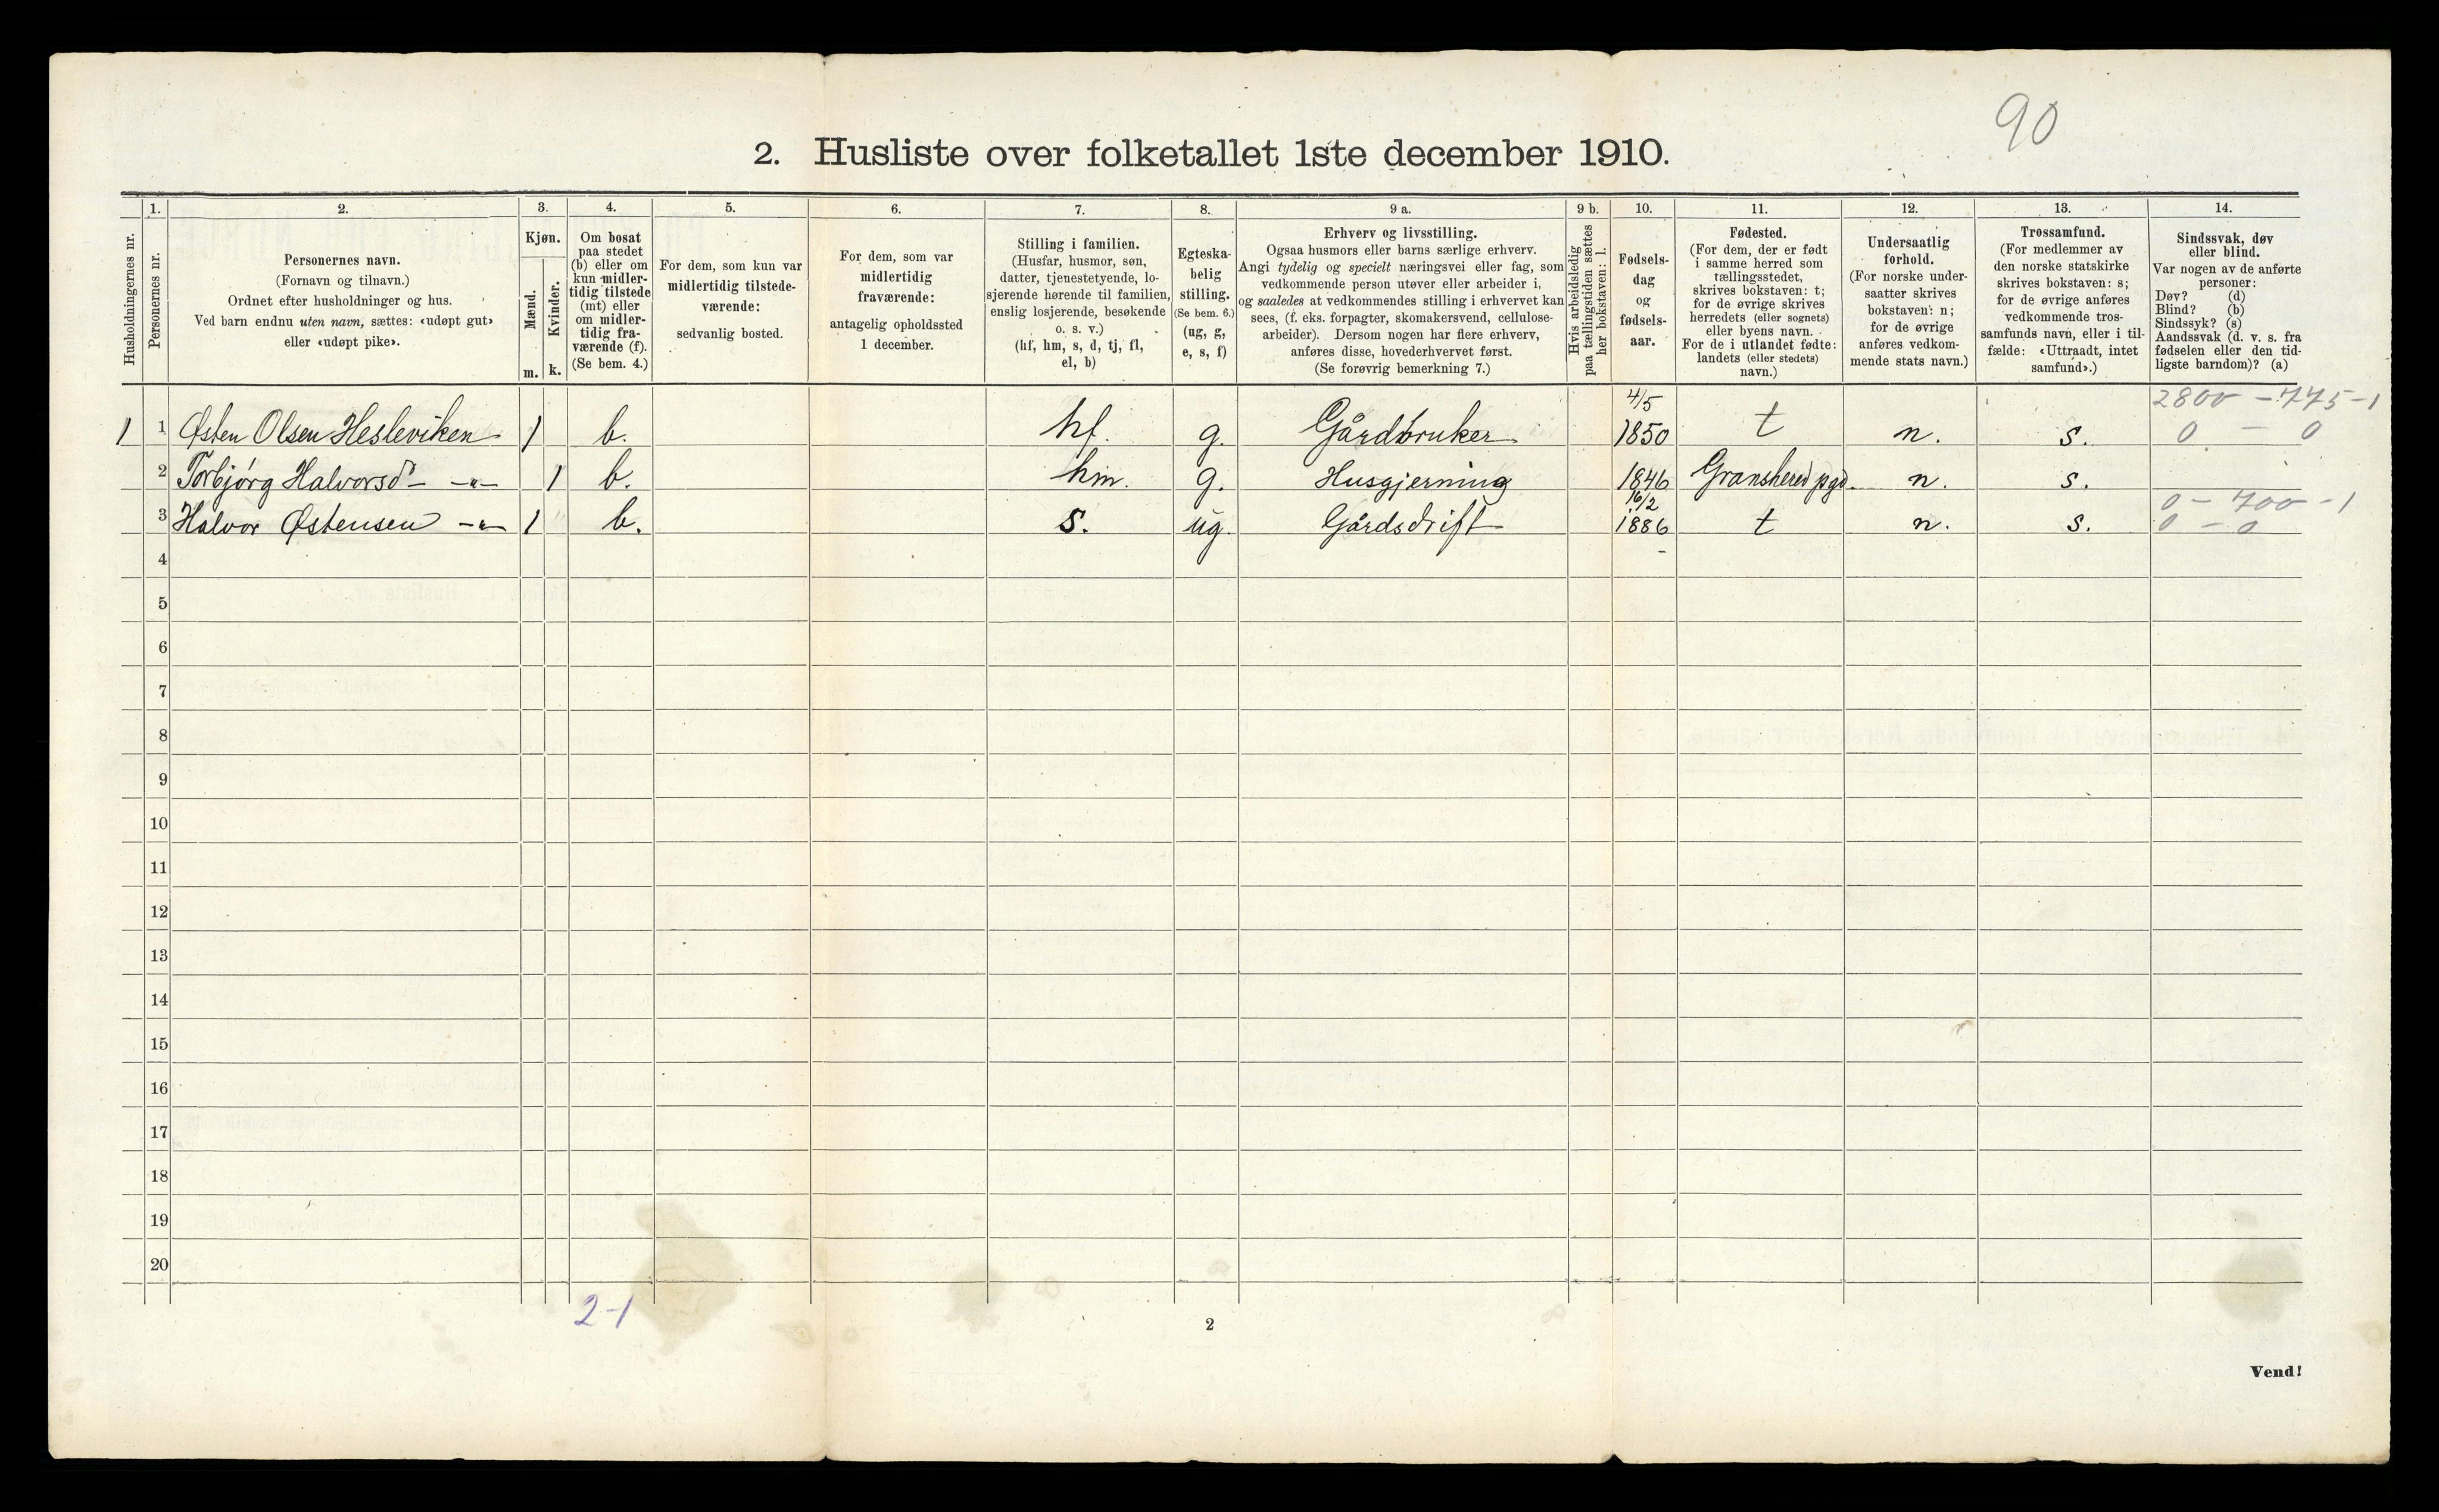 90
2. Husliste over folketallet 1ste december 1910.
Husholdningernes nr.
1.
Personernes nr.
2.
Personernes navn.
(Fornavn og tilnavn.)
Ordnet efter husholdninger og hus.
Ved barn endnu uten navn, sættes: «udøpt gut»
eller «udøpt pike».
3.
Kjøn.
Mænd.
Kvinder.
m. k.
4.
Om bosat
paa stedet
(b) eller om
kun midler-
tidig tilstede
(mt) eller
om midler-
tidig fra-
værende (f).
(Se bem. 4.)
5.
For dem, som kun var
midlertidig tilstede-
værende:
sedvanlig bosted.
6.
For dem, som var
midlertidig
fraværende:
antagelig opholdssted
1 december.
7.
Stilling i familien.
(Husfar, husmor, søn,
datter, tjenestetyende, lo-
sjerende hørende til familien,
enslig losjerende, besøkende
o. s. v.)
(hf, hm, s, d, tj, fl,
el, b)
8.
Egteska-
belig
stilling.
(Se bem. 6.)
(ug, g,
e, s, f)
9 a.
Erhverv og livsstilling.
Ogsaa husmors eller barns særlige erhverv.
Angi tydelig og specielt næringsvei eller fag, som
vedkommende person utøver eller arbeider i,
og saaledes at vedkommendes stilling i erhvervet kan
sees, (f. eks. forpagter, skomakersvend, cellulose-
arbeider). Dersom nogen har flere erhverv,
anføres disse, hovederhvervet først.
(Se forøvrig bemerkning 7.)
9 b.
Hvis arbeidsledig
paa tællingstiden sættes
her bokstaven: l.
10.
Fødsels-
dag
og
fødsels-
aar.
11.
Fødested.
(For dem, der er født
i samme herred som
tællingsstedet,
skrives bokstaven: t;
for de øvrige skrives
herredets (eller sognets)
eller byens navn.
For de i utlandet fødte:
landets (eller stedets)
navn.)
12.
Undersaatlig
forhold.
(For norske under-
saatter skrives
bokstaven: n;
for de øvrige
anføres vedkom-
mende stats navn.)
13.
Trossamfund.
(For medlemmer av
den norske statskirke
skrives bokstaven: s;
for de øvrige anføres
vedkommende tros-
samfunds navn, eller i til-
fælde: «Uttraadt, intet
samfund».)
14.
Sindssvak, døv
eller blind.
Var nogen av de anførte
personer:
Døv? (d)
Blind? (b)
Sindssyk? (s)
Aandssvak (d. v. s. fra
fødselen eller den tid-
ligste barndom)? (a)
4/5 2800 - 775-1
1 1 Østen Olsen Hesleviken 1 b. hf. g. Gårdbruker 1850 t n. s. 0 - 0
2 Torbjørg Halvorsd- -"- 1 b. hm. g. Husgjerning 1846 Gransherred pgd. n. s.
16/2 0 - 700 - 1
3 Halvor Østensen -"- 1 b. s. ug. Gårdsdrift 1886 t n. s. 0 - 0
4
5
6
7
8
9
10
11
12
13
14
15
16
17
18
19
20
2-1
2
Vend!